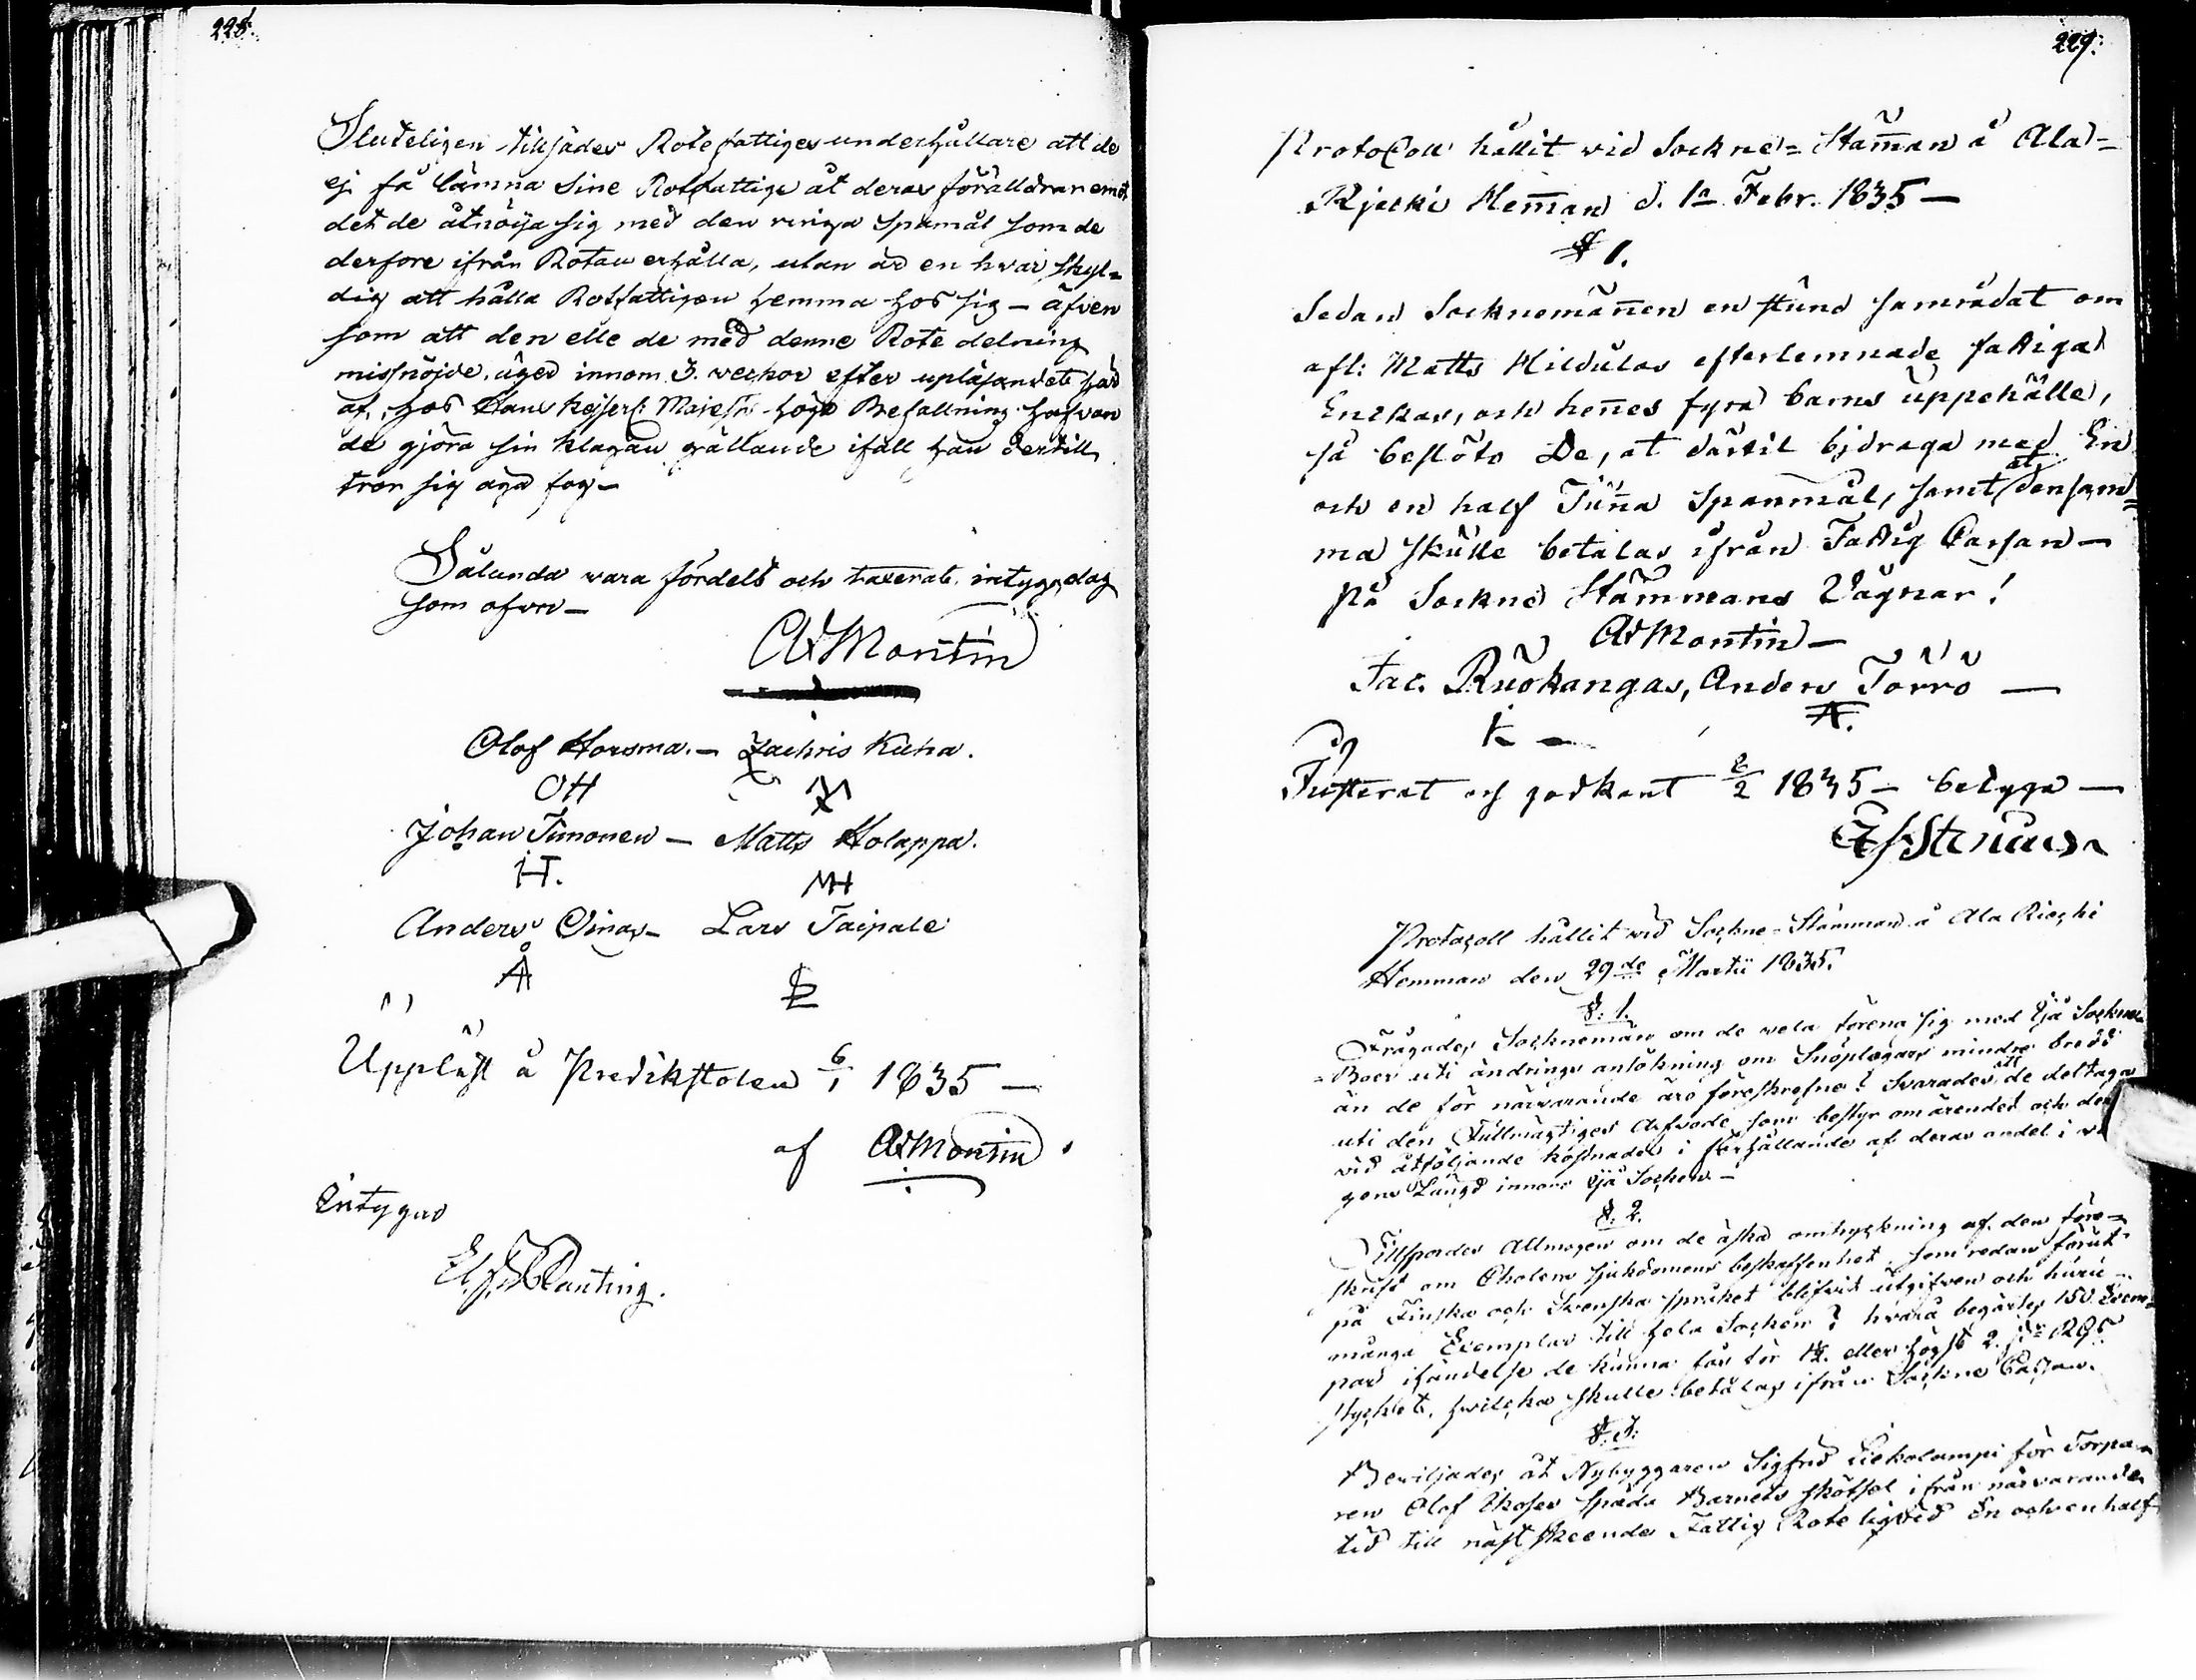 228.
Sluteligen tillsades Rotefattiges underhållare att de
ej få lämna sine Rotfattige åt deras förälldrar emot
det de åtnöija sig med den ringa Spanmål som de
derfore ifrån Rotan erhålla, utan är en hvar skyl=
dig att hålla Rotfattigen hemma hos sig – äfven
som att den elle de med denne Rote delning
missnöjde, äger innom 3. veckor efter upläsandet här
af, hos Hans Kejserl: Majests höge Befallning hafvan
de gjöra sin klagan gällande ifall han dertill
tror sig äga fog –
Sålunda vara fördelt och taxerat, intygga, dag
som ofvan –
A Montin
Olof Horsma. – Zachris Kieha.
OH
Johan Timonen – Matts Holappa.
IT. MH
Anders Oinas – Lars Taipale
Uppläst å Predikstolen 6/1 1835 –
af A Montin
Intygas
Planting.
229.
Protocoll hållit vid Sockne=Stam̄an å Ala=
Kjecki Hem̄an d. 1a Febr. 1835 –
§ 1.
Sedan Socknemän̄en en stund samrådat om
afl: Matts Mildulas efterlemnade fattiga
Enckas, och hen̄es fyra barns uppehälle,
så beslöto De, at därtil bidraga med En
och en half Tun̄a Spanmål, samt at densam=
ma skulle betalas ifrån Fattig Cassan –
På Sockne Stämmans Vägnar!
A Montin –
Jac. Ruokangas, Anders Törrö –
Justerat och godkänt 8/2 1835 – betyga –
Protocoll hållit vid Sockne-Stämman å Ala Kiecki
Hemman den 29de Martii 1835.
§. 1.
Frågades Sockneman om de vela förena sig med Ijå Sockne
Boer uti ändrings ansökning om Snöplogars mindre bredd
än de för närvarande äro föreskrefne? Svarades, att de deltaga
uti den Fullmägtiges Arfvode som bestyr om ärendet och der
vid åtföljande kostnader i förhållande af deras andel i vä
gens Längd innom Ijå Socken –
§. 2.
Tillspordes Allmogen om de äska omtryckning af den före=
skrift om Cholera sjukdomens beskaffenhet, som redan förut
på Finska och Svenska språket blifvit utgifven och huru
många Exemplar till hela Socken? hvarå begärtes 150. Exem=
plar ifändelse de kunna fås för 1½. eller högst 2.
stycket, hvilcka skulle betalas ifrån Sockne Cassan.
§. 3.
Beviljades åt Nybyggaren Sigfrid Liekolampi för Torpa
ren Olof Ikoses späda Barnets skötsel ifrån närvarande
tid till näst skeende Fattig Rote ligvid En och en half